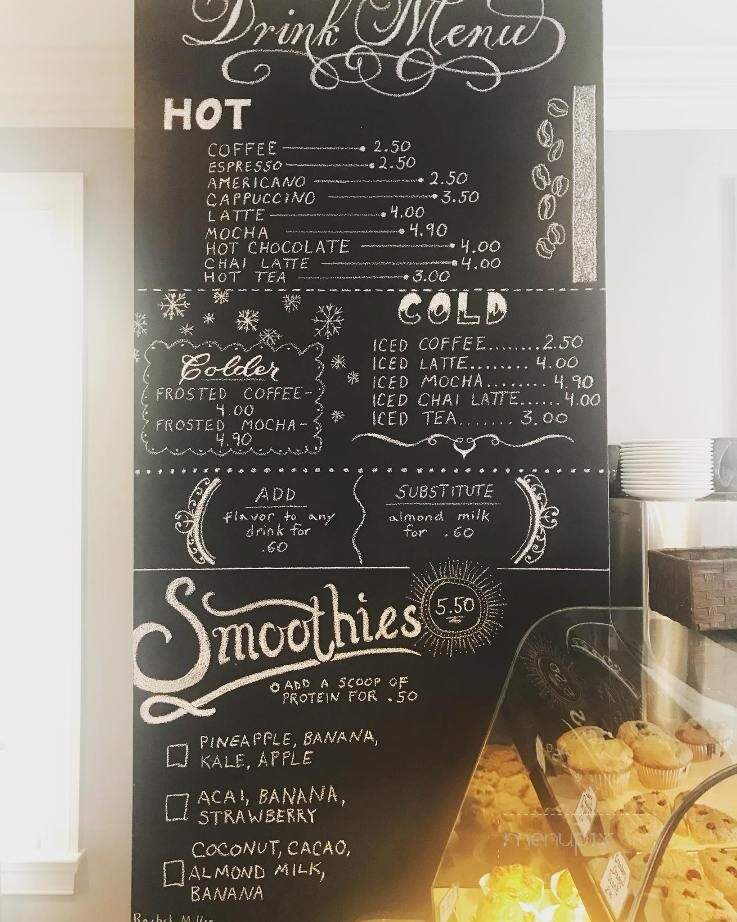 Drink Menu
HOT
COFFEE 2.50
ESPRESSO 2.50
AMERICANO 2.50
CAPPUCCINO 3.50
LATTE 4.00
MOCHA 4.90
HOT CHOCOLATE 4.00
CHAI LATTE 4.00
HOT TEA 3.00
COLD
ICED COFFEE........2.50
ICED LATTE........ 4.00
ICED MOCHA........ 4.90
ICED CHAI LATTE......4.00
ICED TEA....... 3.00
Colder
FROSTED COFFEE-
4.00
FROSTED MOCHA-
4.90
ADD
flavor to any
drink for
.60
SUBSTITUTE
almond milk
for .60
Smoothies
5.50
ADD A SCOOP OF
PROTEIN FOR .50
PINEAPPLE, BANANA,
KALE, APPLE
ACAI, BANANA,
STRAWBERRY
COCONUT, CACAO,
ALMOND MILK,
BANANA
Rachel
menupix